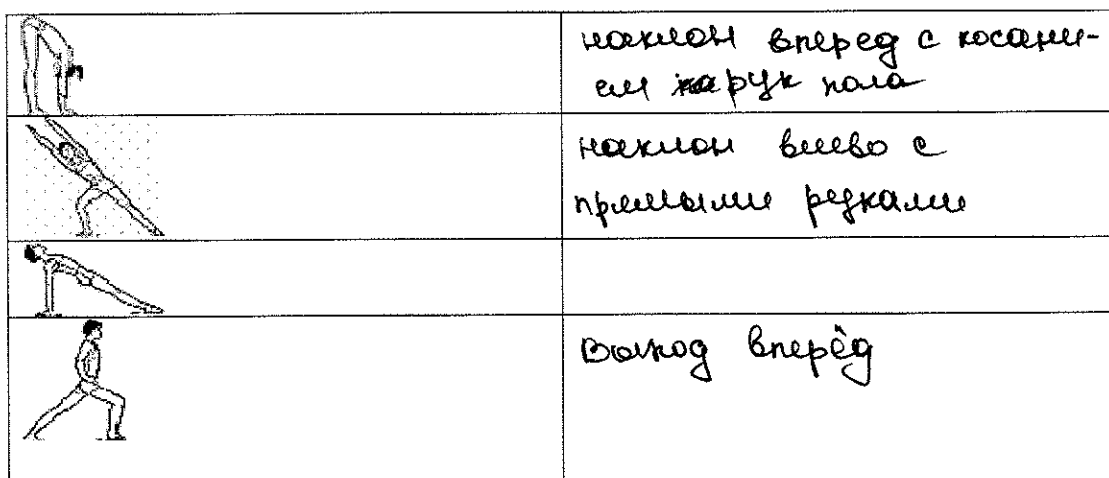 наклон вперед с косани-
ем рук пола
наклон влево с
прямыми редками
Выход вперёд